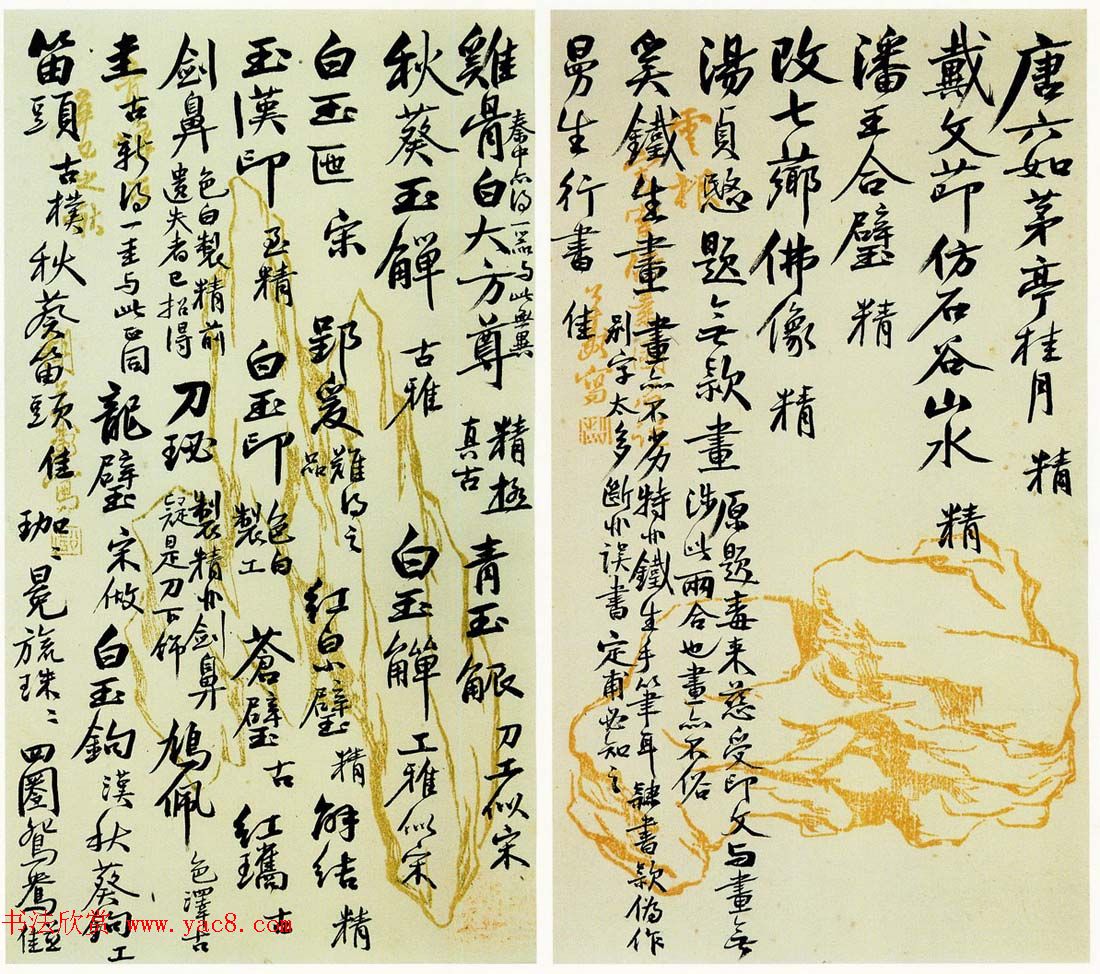 唐六如茅亭桂月 精
戴文節仿石谷山水 精
潘王合璧 精
改七薌佛像 精
湯貞愍題無款畫 原題毒来慈受印文與畫無涉此兩合也畫亦不俗
奚鐵生畫 畫亦不劣特非鐵生手筆耳隸書款偽作別字太多斷非誤書定甫必知之
曼生行書 佳
雞骨白大方尊 精極真古 秦中亦得一器與此無異 青玉觚 刀工似宋
秋葵玉觶 古雅 白玉觶 工雅似宋
白玉匜 宋 郢爰 難得之品 紅白小璧 精 解結 精
玉漢印 至精 白玉印 色白製工 蒼璧 古 紅瓗 古
劍鼻 色白製精前遺失者已招得 刀珌 製精非劍鼻疑是刀下飾 鳩佩 色澤古
圭 古新得一圭與此正同 龍璧 宋倣 白玉鉤 漢 秋葵鉤 工
笛頭 古樸 秋葵笛頭 佳 珈珈 冕旒珠珠 四圈 鴛鴦 佳
书法欣赏 www.yac8.com